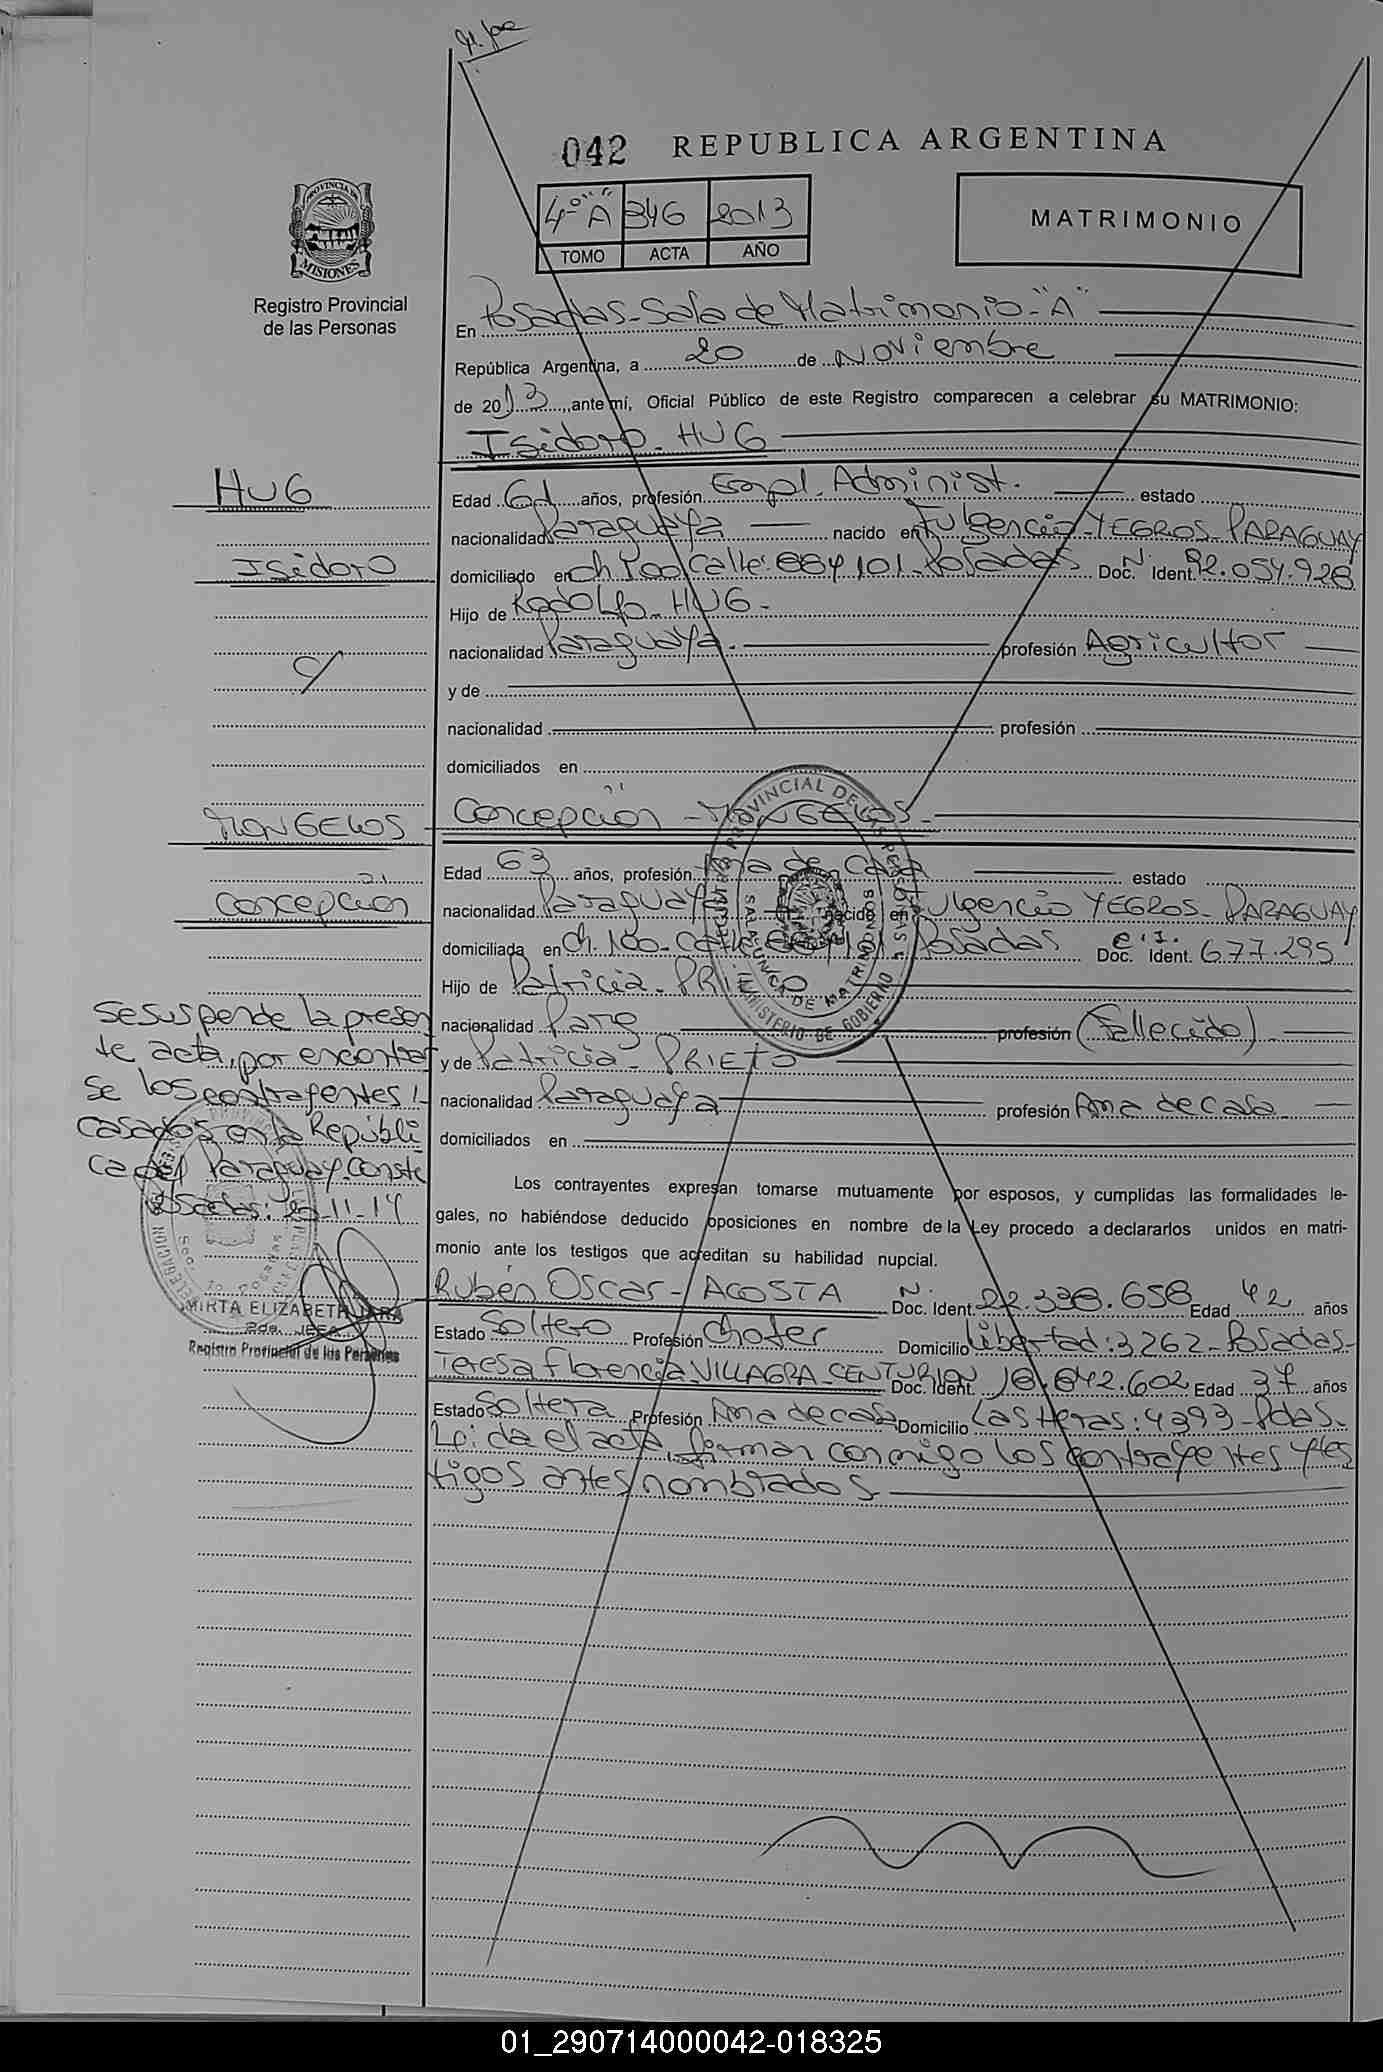 042 REPUBLICA ARGENTINA
PROVINCIA DE
MISIONES
Registro Provincial
de las Personas
4º "A" 346 2013
TOMO ACTA AÑO
MATRIMONIO
En Posadas - Sala de Matrimonio - "A"
República Argentina, a 20 de Noviembre
de 2013, ante mí, Oficial Público de este Registro comparecen a celebrar su MATRIMONIO:
Isidoro - HUG
HUG
Isidoro
c/
MONGELOS
Concepción
Edad 61 años, profesión Empl. Administ. estado
nacionalidad Paraguaya nacido en Fulgencio - YEGROS - PARAGUAY
domiciliado en Ch. 100 Calle: 101 - Posadas Doc. Ident. Nº 92.054.928
Hijo de Rodolfo - HUG -
nacionalidad Paraguaya. profesión Agricultor
y de
nacionalidad profesión
domiciliados en
Concepción - MONGELOS -
Edad 63 años, profesión Ama de Casa estado
nacionalidad Paraguaya nacido en Fulgencio YEGROS - PARAGUAY
domiciliada en Ch. 100 - Calle 101 Posadas Doc. Ident. C.I. 677.295
Hijo de Patricia - PRIETO
nacionalidad Parg profesión (Fallecido)
y de Patricia - PRIETO
nacionalidad Paraguaya profesión Ama de casa
domiciliados en
Los contrayentes expresan tomarse mutuamente por esposos, y cumplidas las formalidades le-
gales, no habiéndose deducido oposiciones en nombre de la Ley procedo a declararlos unidos en matri-
monio ante los testigos que acreditan su habilidad nupcial.
Rubén Oscar - ACOSTA Doc. Ident. Nº 22.338.658 Edad 42 años
Estado Soltero Profesión Chofer Domicilio Libertad: 3262 - Posadas -
Teresa Florencia VILLAGRA - CENTURION Doc. Ident. 18.842.602 Edad 37 años
Estado Soltera Profesión Ama de casa Domicilio Las Heras: 4393 - Pdas.
Leida el acta, firman conmigo los contrayentes y tes
tigos antes nombrados
Se suspende la presen
te acta, por encontrar
se los contrayentes
casados en la Republi
ca del Paraguay. Conste
Posadas: 20-11-14
MIRTA ELIZABETH JARA
2da. JEFA
Registro Provincial de las Personas
REGISTRO PROVINCIAL DE LAS PERSONAS
SALA UNICA DE MATRIMONIOS
MINISTERIO DE GOBIERNO
01_290714000042-018325